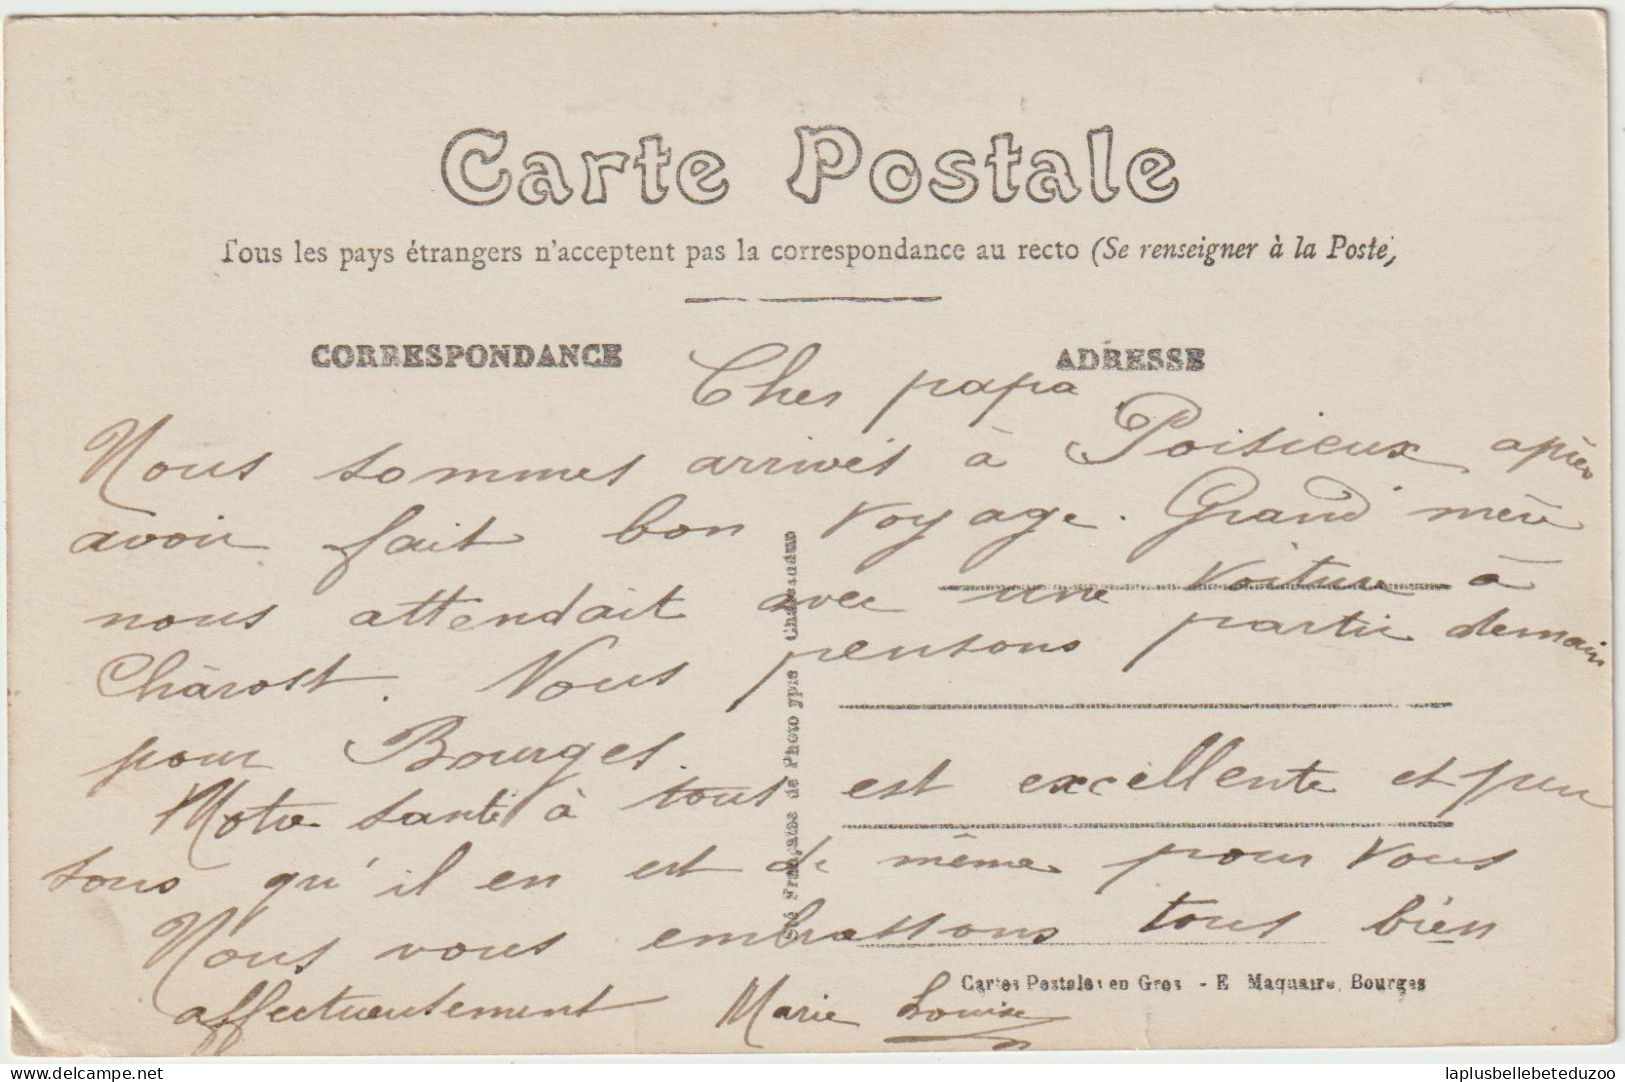 Carte Postale
Tous les pays étrangers n'acceptent pas la correspondance au recto (Se renseigner à la Poste)
CORRESPONDANCE
ADRESSE
Cher papa
Nous sommes arrivés à Poisieux après
avoir fait bon voyage. Grand'mère
nous attendait avec une voiture à
Chârost. Nous pensons partir demain
pour Bourges.
Notre santé à tous est excellente et
sons qu'il en est de même pour vous
Nous vous embrassons tous bien
affectueusement Marie Louise
Stés Françaises de Photo ypie Chateaudun
Cartes Postales en Gros - E Maquaire, Bourges
laplusbellebeteduzoo